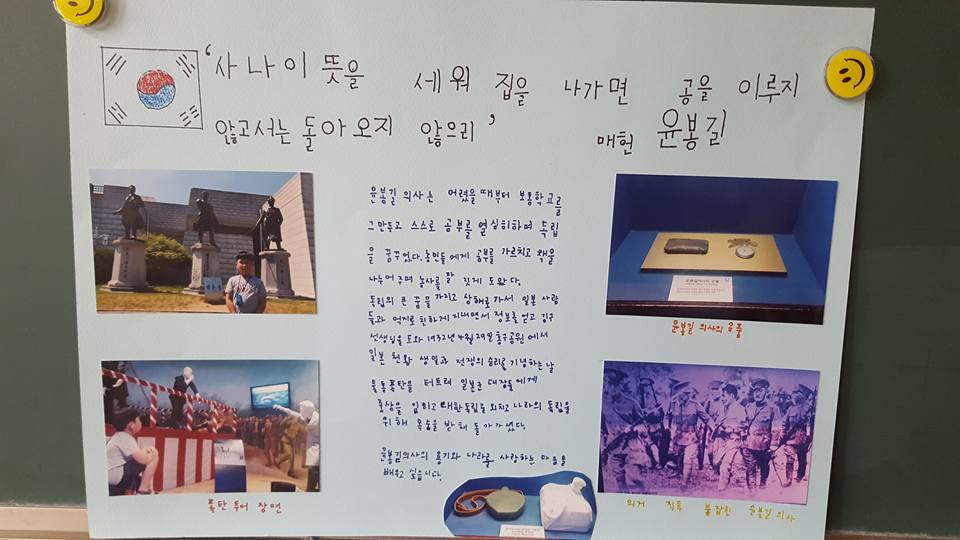 '사나이 뜻을 세워 집을 나가면 공을 이루지
않고서는 돌아오지 않으리' 매헌 윤봉길
윤봉길 의사는 어렸을때부터 보통학교를
그만두고 스스로 공부를 열심히하며 독립
을 꿈꾸었다. 농민들에게 공부를 가르치고 책을
나누어 주며 농사를 잘 짓게 도왔다.
독립의 큰 꿈을 가지고 상해로 가서 일본 사람
들과 억지로 친하게 지내면서 정보를 얻고 김구
선생님을 도와 1932년 4월 29일 홍구공원에서
일본 천황 생일과 전쟁의 승리를 기념하는 날
물통폭탄을 터트려 일본군 대장들에게
중상을 입히고 대한독립을 외치고 나라의 독립을
위해 목숨을 받해 돌아가셨다.
윤봉길의사의 용기와 나라를 사랑하는 마음을
배우고 싶습니다.
윤봉길 의사의 유품
폭탄 투여 장면
의거 직후 붙잡힌 윤봉길 의사